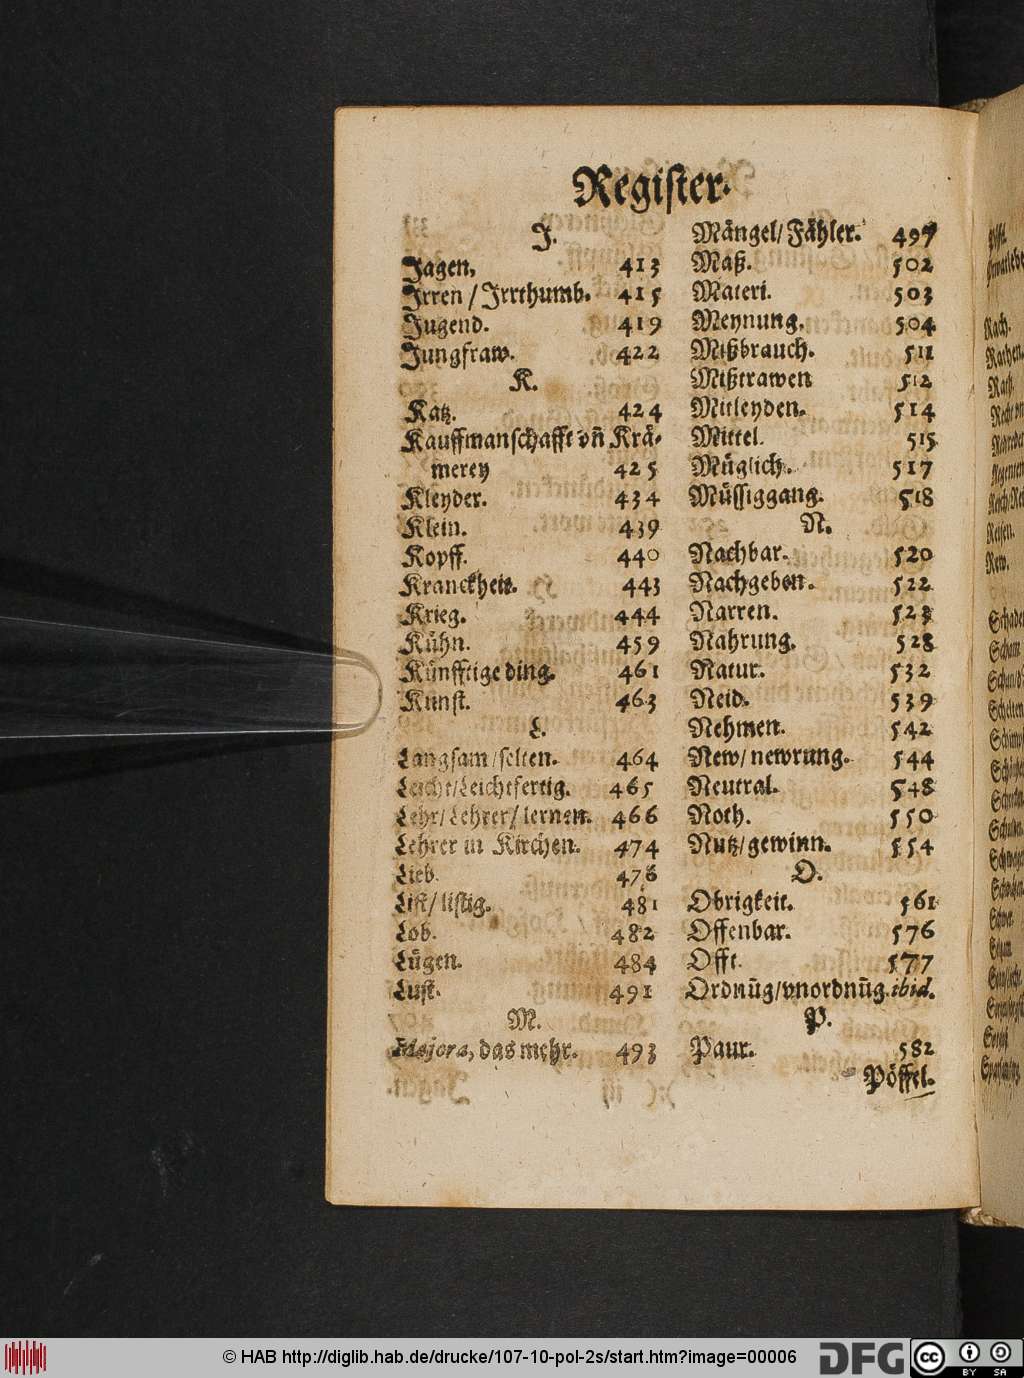 Register.
J.
Jagen, 413
Jrren / Jrrthumb. 415
Jugend. 419
Jungfraw. 422
K.
Katz. 424
Kauffmanschafft vñ Krä-
merey 425
Kleyder. 434
Klein. 439
Kopff. 440
Kranckheit. 443
Krieg. 444
Kühn. 459
Künfftige ding. 461
Kunst. 463
L.
Langsam/selten. 464
Leicht/Leichtfertig. 465
Lehr/Lehrer/lernen. 466
Lehrer in Kirchen. 474
Lieb. 476
List/listig. 481
Lob. 482
Lügen. 484
Lust. 491
M.
Majora, das mehr. 493
Mängel/Fähler. 497
Maß. 502
Materi. 503
Meynung. 504
Mißbrauch. 511
Mißtrawen 512
Mitleyden. 514
Mittel. 515
Müglich. 517
Müssiggang. 518
N.
Nachbar. 520
Nachgeben. 522
Narren. 523
Nahrung. 528
Natur. 532
Neid. 539
Nehmen. 542
New/newrung. 544
Neutral. 548
Noth. 550
Nutz/gewinn. 554
O.
Obrigkeit. 561
Offenbar. 576
Offt. 577
Ordnũg/vnordnũg. ibid.
P.
Paur. 582
Pöffel.
© HAB http://diglib.hab.de/drucke/107-10-pol-2s/start.htm?image=00006
DFG
cc
BY SA